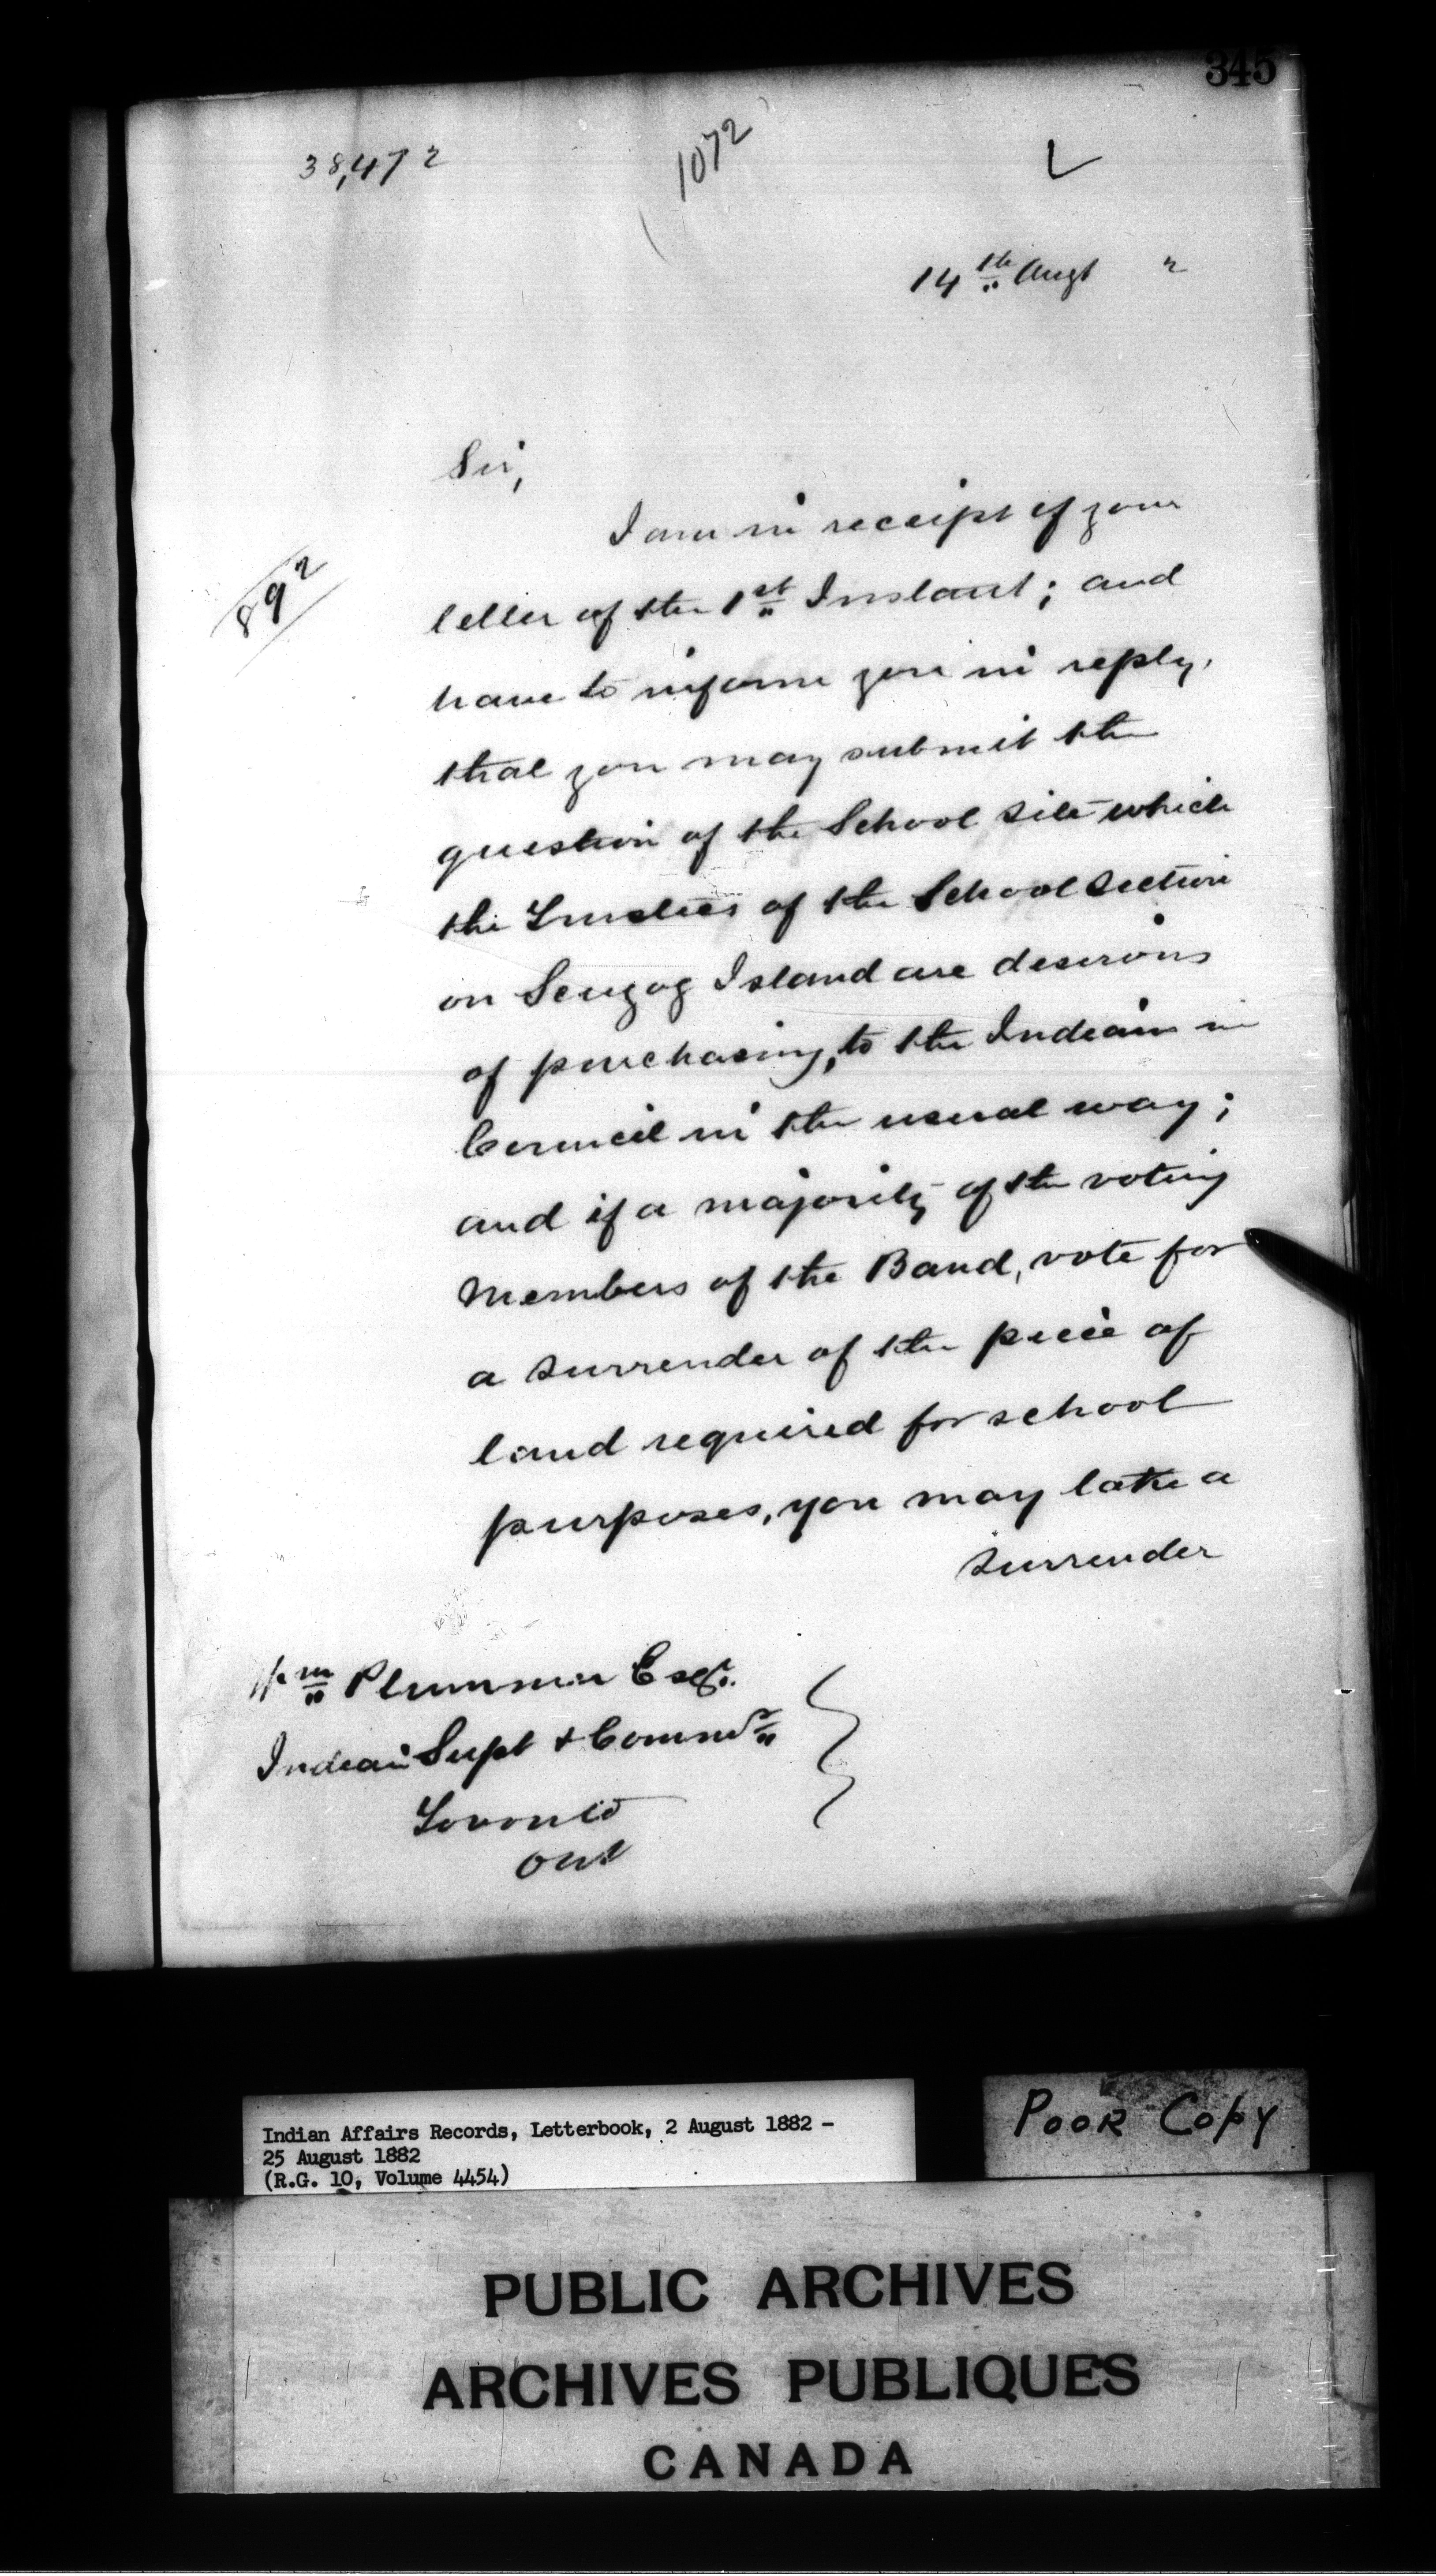 345
38,472
1072
14th Augt 2
Sir,
I am in receipt of your
892
letter of the 1st Instant; and
have to inform you in reply,
that you may submit the
question of the School site which
the Trustees of the School Section
on Scugog Island are desirous
of purchasing, to the Indians in
Council in the usual way;
and if a majority of the voting
Members of the Band, vote for
a surrender of the piece of
land required for school
purposes, you may take a
surrender
Wm Plummer Esqr.
Indian Supt & Commr
Toronto
Ont
Indian Affairs Records, Letterbook, 2 August 1882 -
25 August 1882
(R.G. 10, Volume 4454)
POOR COPY
PUBLIC ARCHIVES
ARCHIVES PUBLIQUES
CANADA